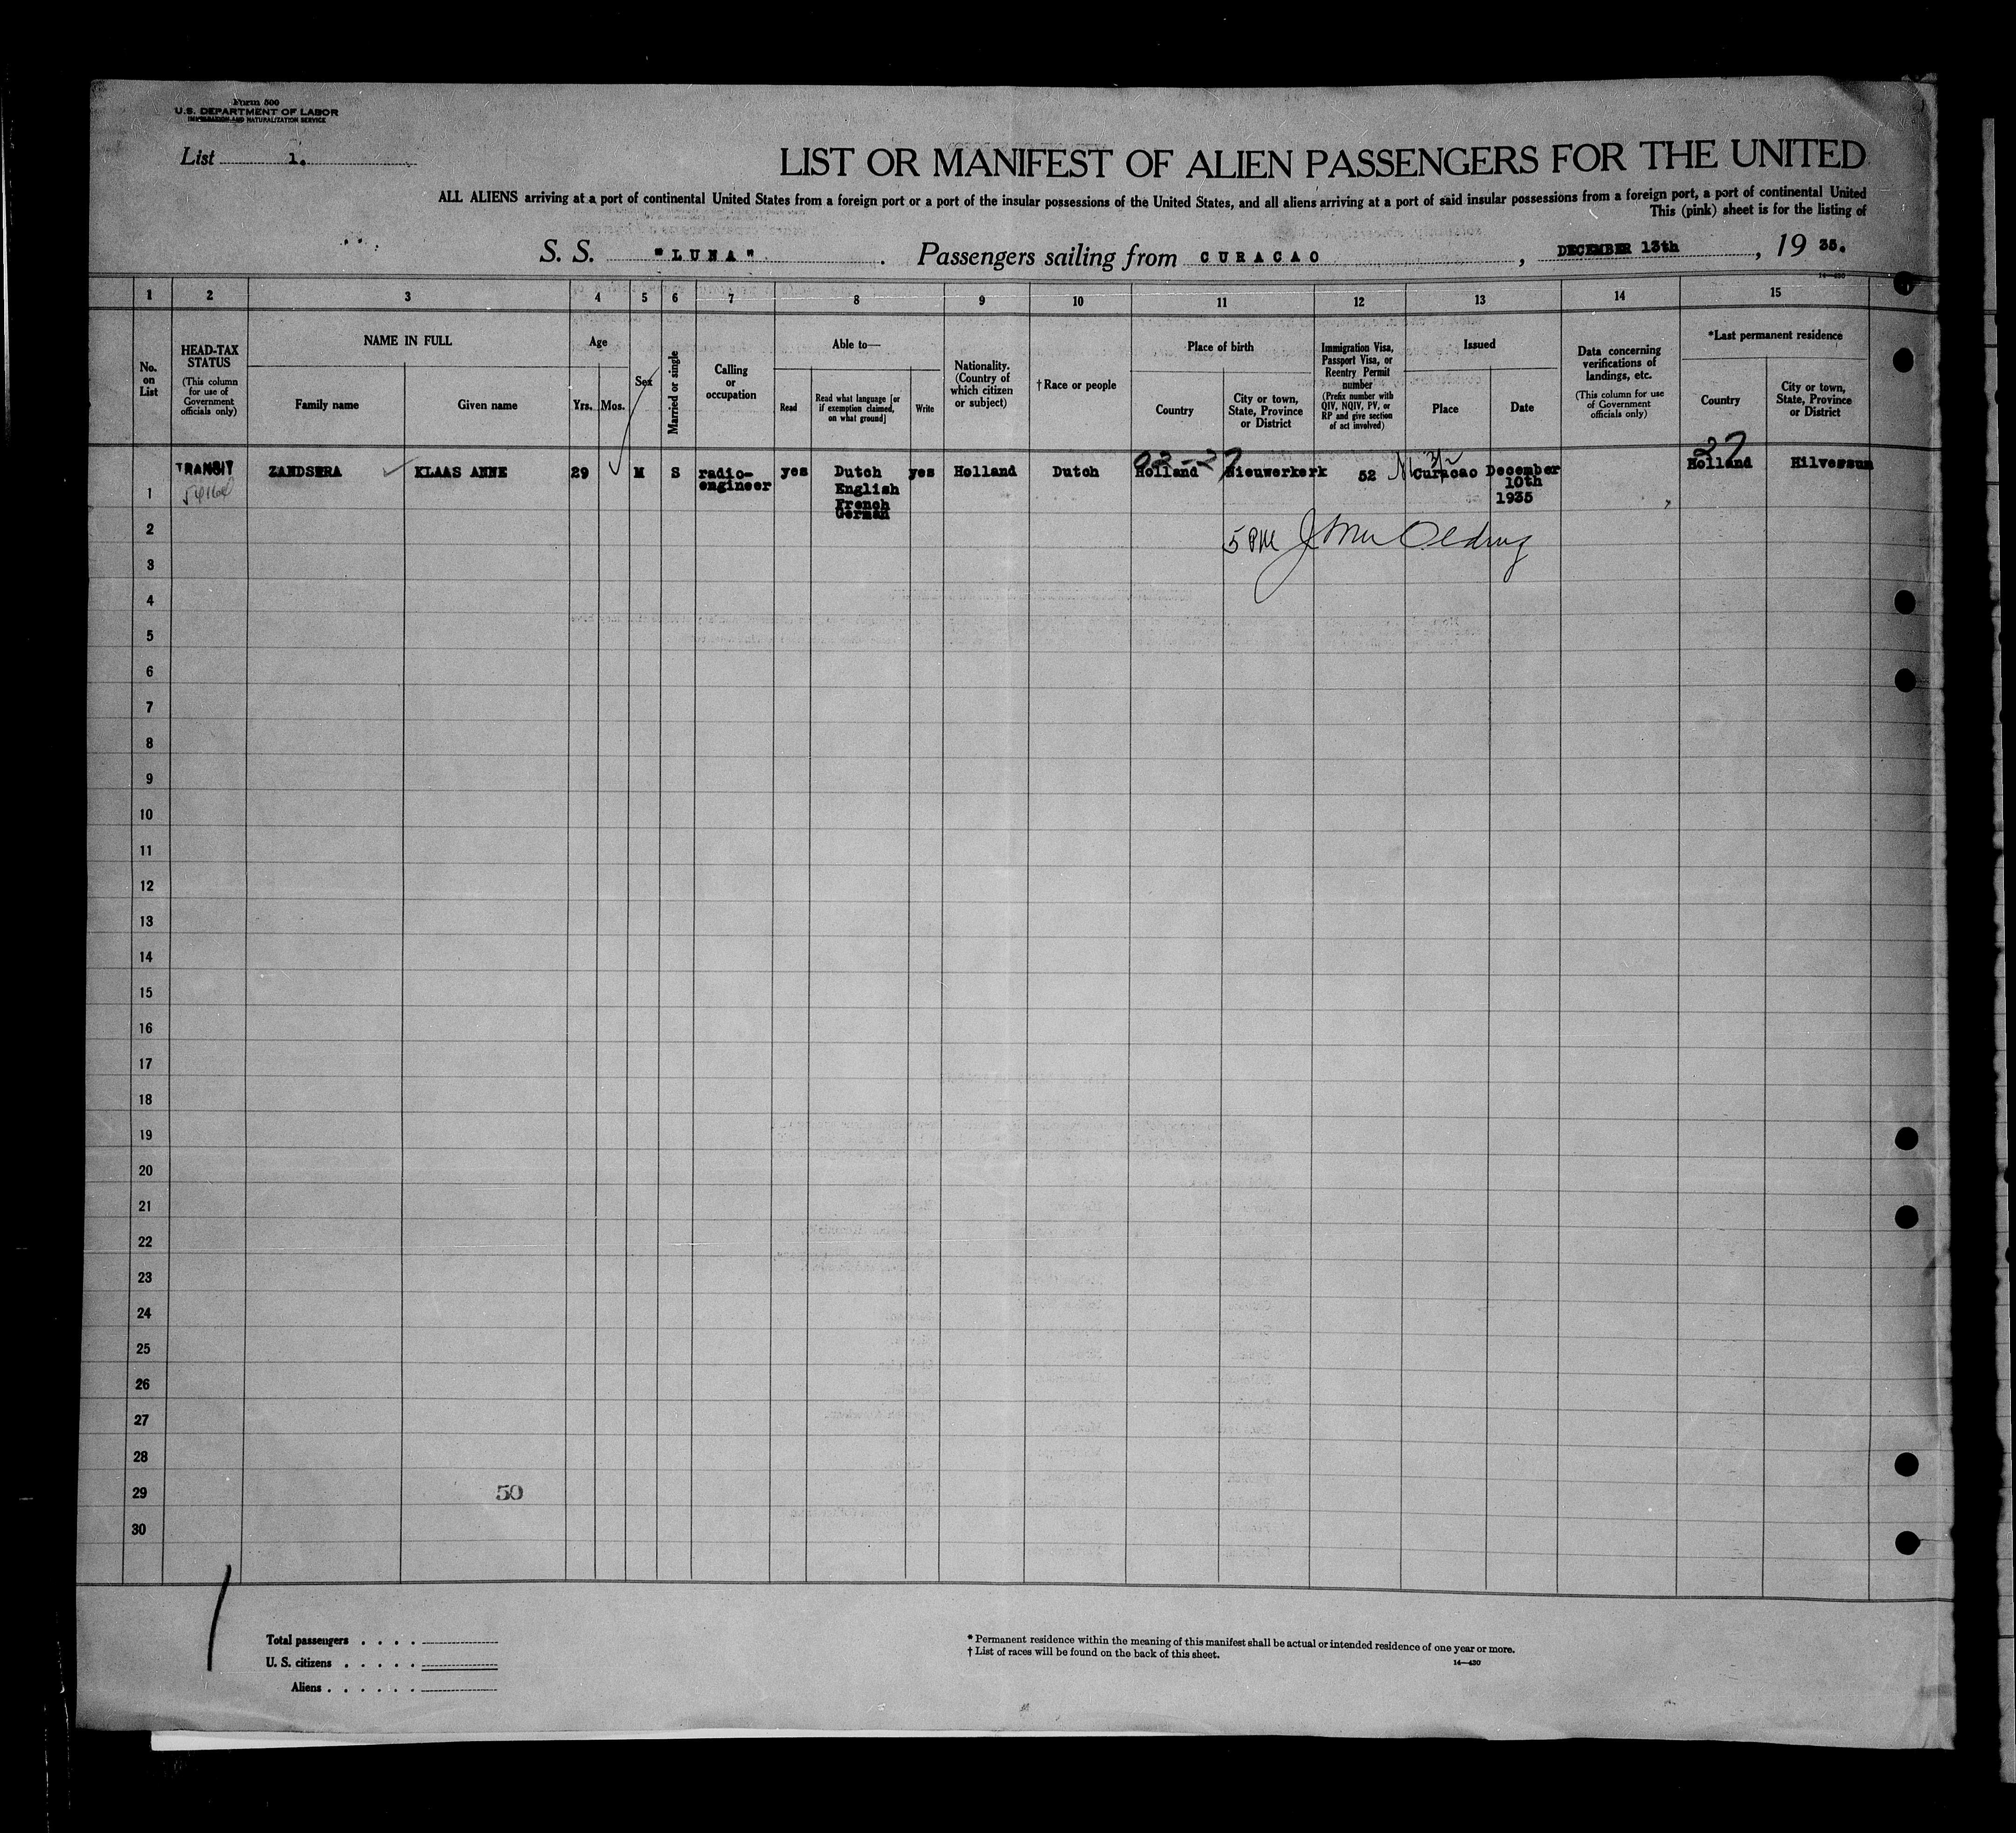 Form 500
U.S. DEPARTMENT OF LABOR
IMMIGRATION AND NATURALIZATION SERVICE
List 1.
LIST OR MANIFEST OF ALIEN PASSENGERS FOR THE UNITED
ALL ALIENS arriving at a port of continental United States from a foreign port or a port of the insular possessions of the United States, and all aliens arriving at a port of said insular possessions from a foreign port, a port of continental United
This (pink) sheet is for the listing of
S. S. "LUNA". Passengers sailing from CURACAO, DECEMBER 13th, 19 35.
14—430
1 2 3 4 5 6 7 8 9 10 11 12 13 14 15
No. on List
HEAD-TAX STATUS
(This column for use of Government officials only)
NAME IN FULL
Family name
Given name
Age
Yrs.
Mos.
Sex
Married or single
Calling or occupation
Able to—
Read
Read what language [or if exemption claimed, on what ground]
Write
Nationality. (Country of which citizen or subject)
†Race or people
Place of birth
Country
City or town, State, Province or District
Immigration Visa, Passport Visa, or Reentry Permit number
(Prefix number with QIV, NQIV, PV, or RP and give section of act involved)
Issued
Place
Date
Data concerning verifications of landings, etc.
(This column for use of Government officials only)
*Last permanent residence
Country
City or town, State, Province or District
02-27
27
1 TRANSIT ZANDSERA KLAAS ANNE 29 M S radio-engineer yes Dutch English French German yes Holland Dutch Holland Nieuwerkerk 52 Curacao December 10th 1935 Holland Hilversum
5 PM
2
3
4
5
6
7
8
9
10
11
12
13
14
15
16
17
18
19
20
21
22
23
24
25
26
27
28
29 50
30
Total passengers . . . .
U. S. citizens . . . . .
Aliens . . . . . .
* Permanent residence within the meaning of this manifest shall be actual or intended residence of one year or more.
† List of races will be found on the back of this sheet.
14—430